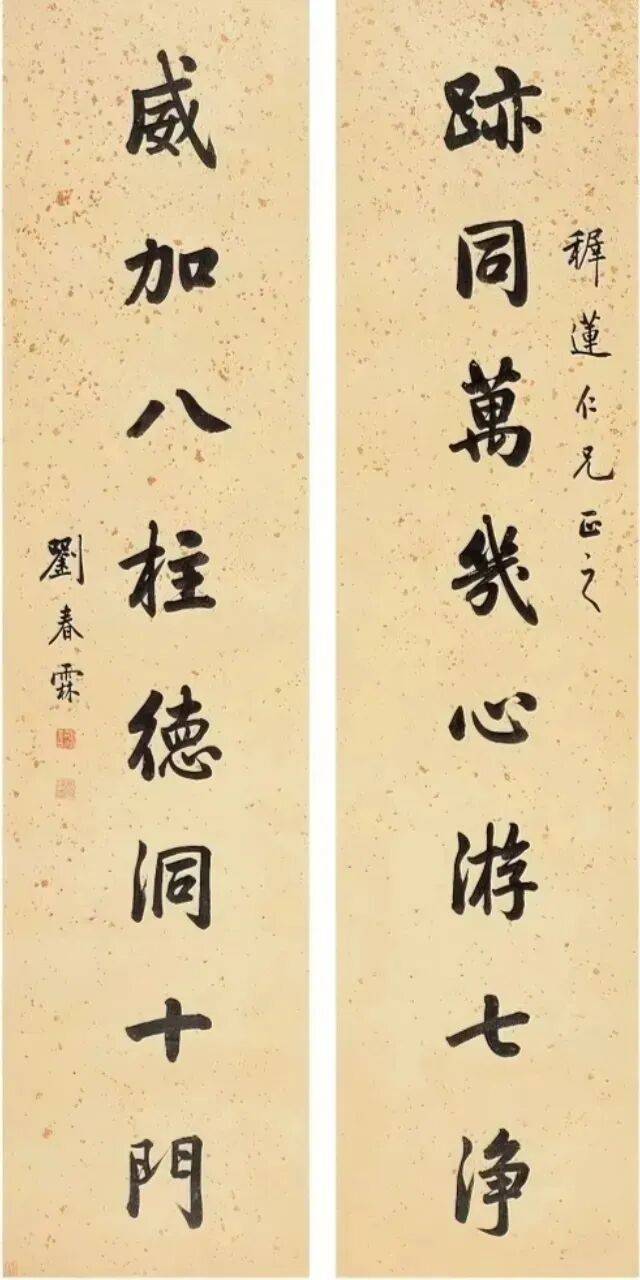 稺蓮仁兄正之
跡同萬幾心游七淨
威加八柱德洞十門
劉春霖